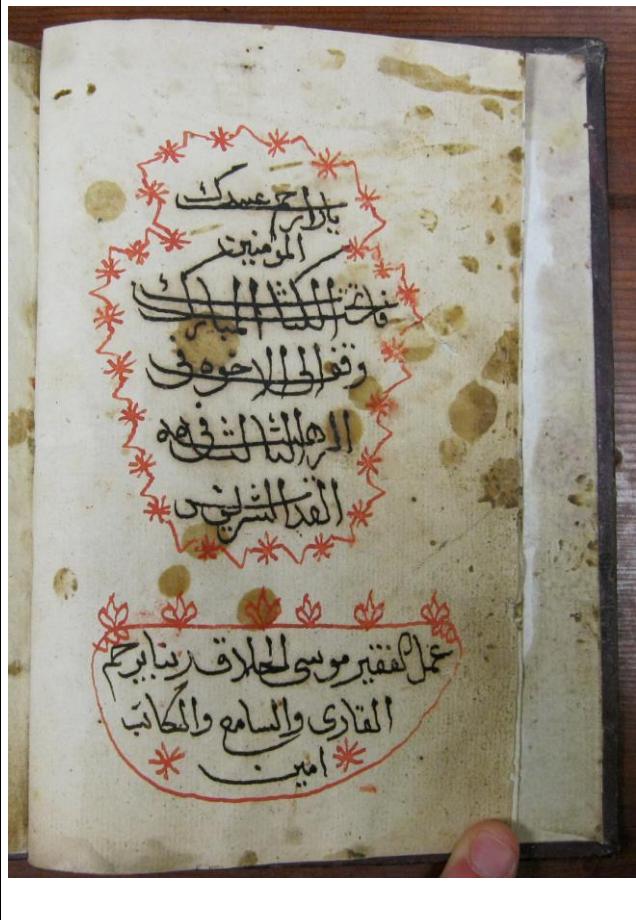 يا دارحم عبيدك
المؤمنين
الكتاب المبارك
وقف الى الاخوه فى
الثالث فى
القدس الشريف
عمل لفقير موسى الحلاق ربنا يرحم
القارى والسامع والكاتب
امين